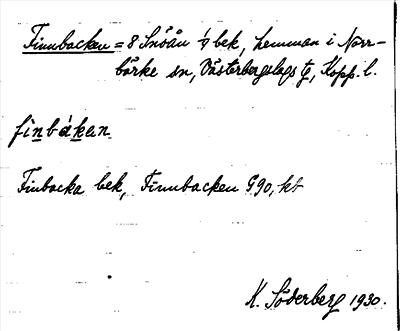 Finnbacken = 8 Snöån 1/4 bek, hemman i Norr-
bärke sn, Västerbergslags tg, Kopp. l.
finbàkan
Finbacka bek, Finnbacken G90, kt
K. Söderberg 1930.